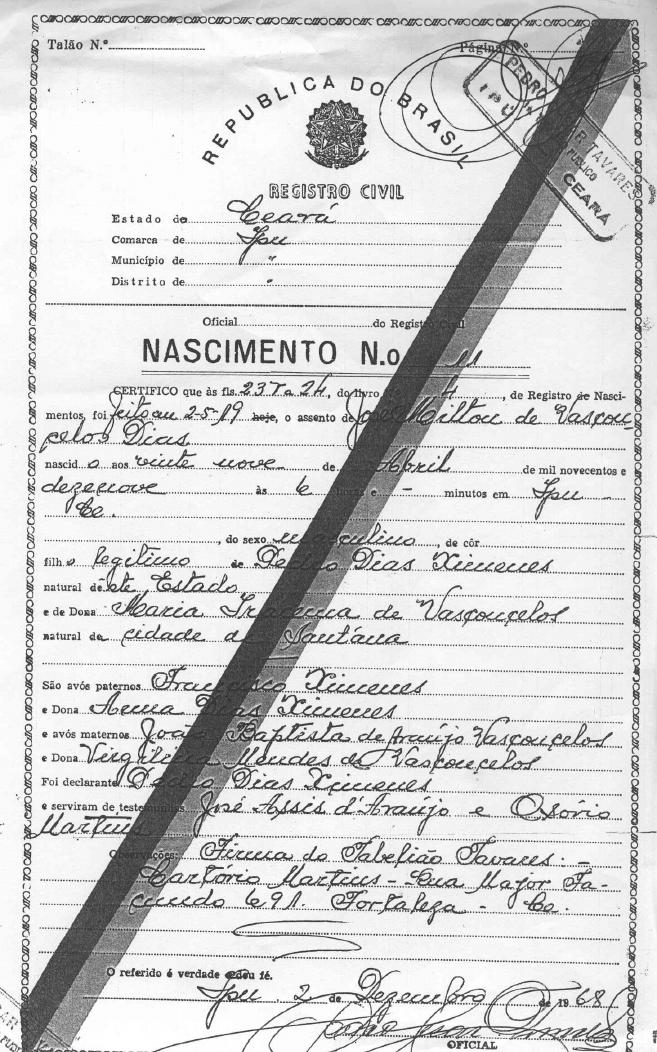 Talão N.º
Página N.º
PEDRO
IPU
TAVARES
PUBLICO
CEARÁ
REPUBLICA DO BRASIL
REGISTRO CIVIL
Estado do Ceará
Comarca de Ipu
Município de "
Distrito de "
Oficial do Registro Civil
NASCIMENTO N.o 11
CERTIFICO que às fls. 23V a 24, do livro 4, de Registro de Nasci-
mentos, foi feito em 2-5-19 hoje, o assento de José Milton de Vascon-
celos Dias
nascido aos vinte nove de Abril de mil novecentos e
dezenove às 6 horas e - minutos em Ipu -
Ce.
, do sexo masculino, de côr
filho legitimo de Pedro Dias Ximenes
natural deste Estado
e de Dona Maria Iracema de Vasconcelos
natural da cidade de Santána
São avós paternos Francisco Ximenes
e Dona Anna Dias Ximenes
e avós maternos João Baptista de Araújo Vasconcelos
e Dona Virgilina Mendes de Vasconcelos
Foi declarante Pedro Dias Ximenes
e serviram de testemunhas José Assis d'Araújo e Osório
Martins
Observações: Firma do Tabelião Tavares. -
Cartorio Martins - Rua Major Fa-
cundo 691. Fortaleza - Ce.
O referido é verdade e dou fé.
Ipu, 2 de Dezembro de 1968
OFICIAL